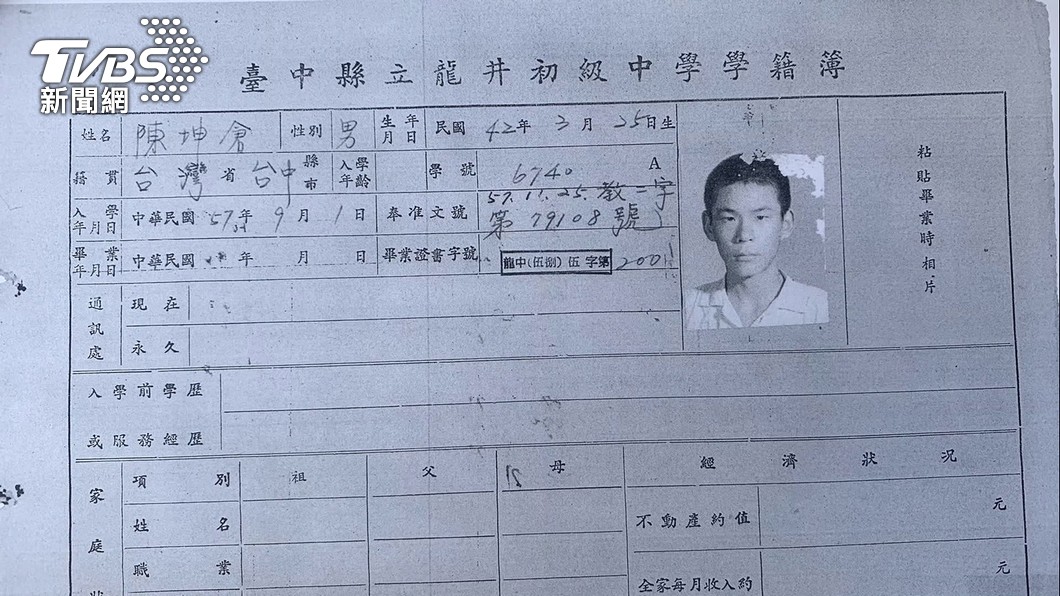 TVBS
新聞網
臺中縣立龍井初級中學學籍簿
姓名 陳坤倉 性別 男 生年月日 民國 42年 3月 25日生
籍貫 台灣省 台中縣市 入學年齡 學號 6740 A
入學年月日 中華民國 57年 9月 1日 奉准文號 57.11.25.教二字第79108號
畢業年月日 中華民國 年 月 日 畢業證書字號 龍中(伍捌)伍字第 200
粘貼畢業時相片
通訊處 現在
永久
入學前學歷
或服務經歷
家庭狀 項別 祖 父 母 經濟狀況
姓名 不動產約值 元
職業 全家每月收入約 元